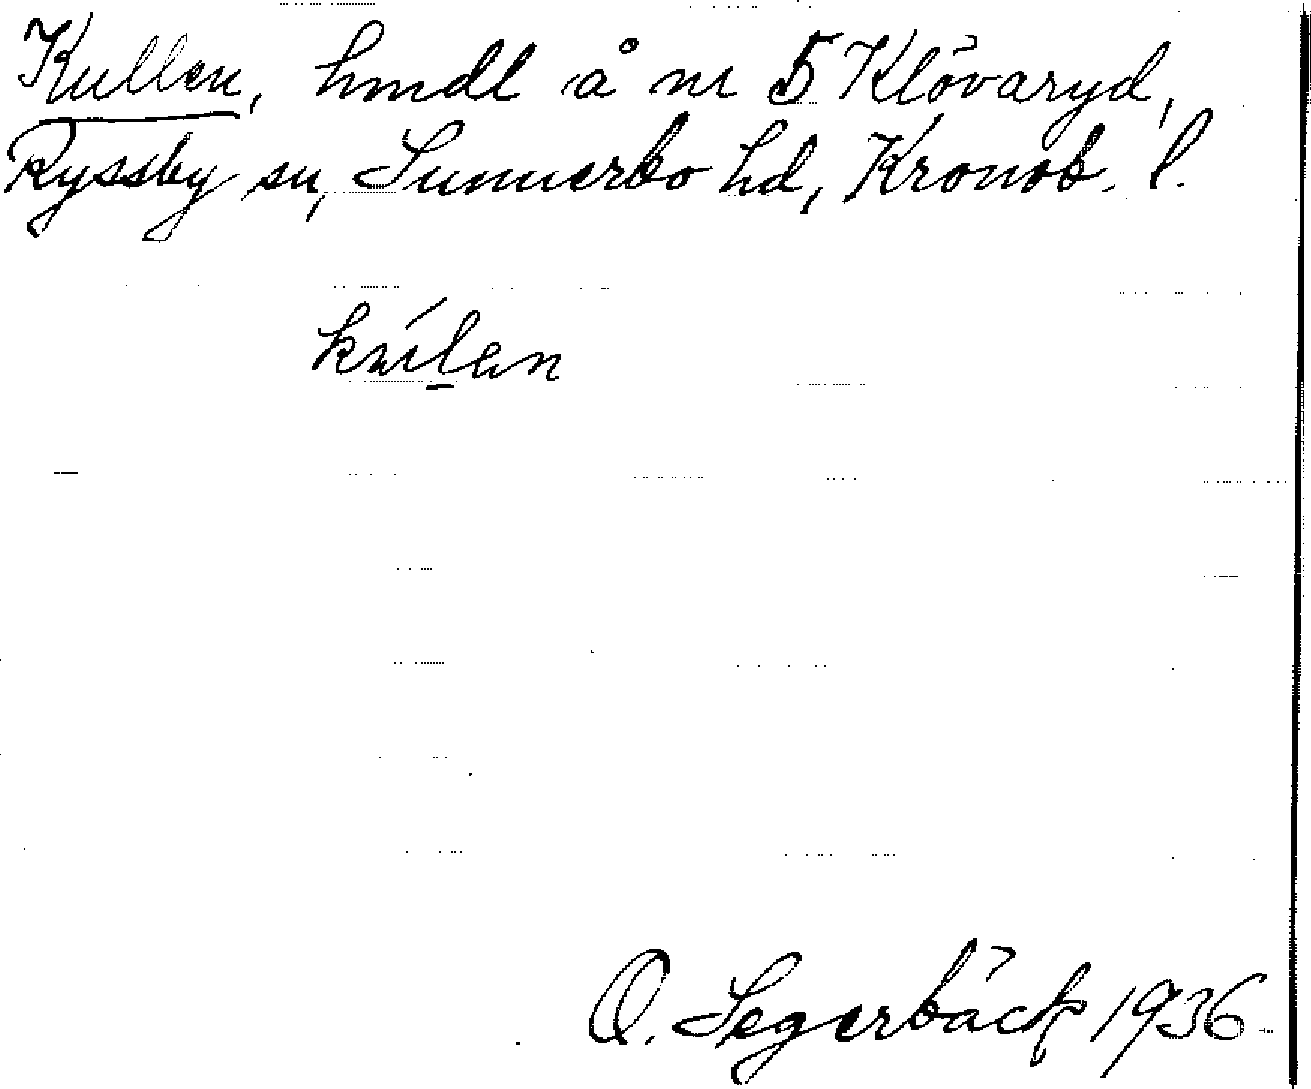 Kullen, hmdl å nr 5 Klövaryd,
Ryssby sn, Sunnerbo hd, Kronob. l.
O. Segerbäck 1936